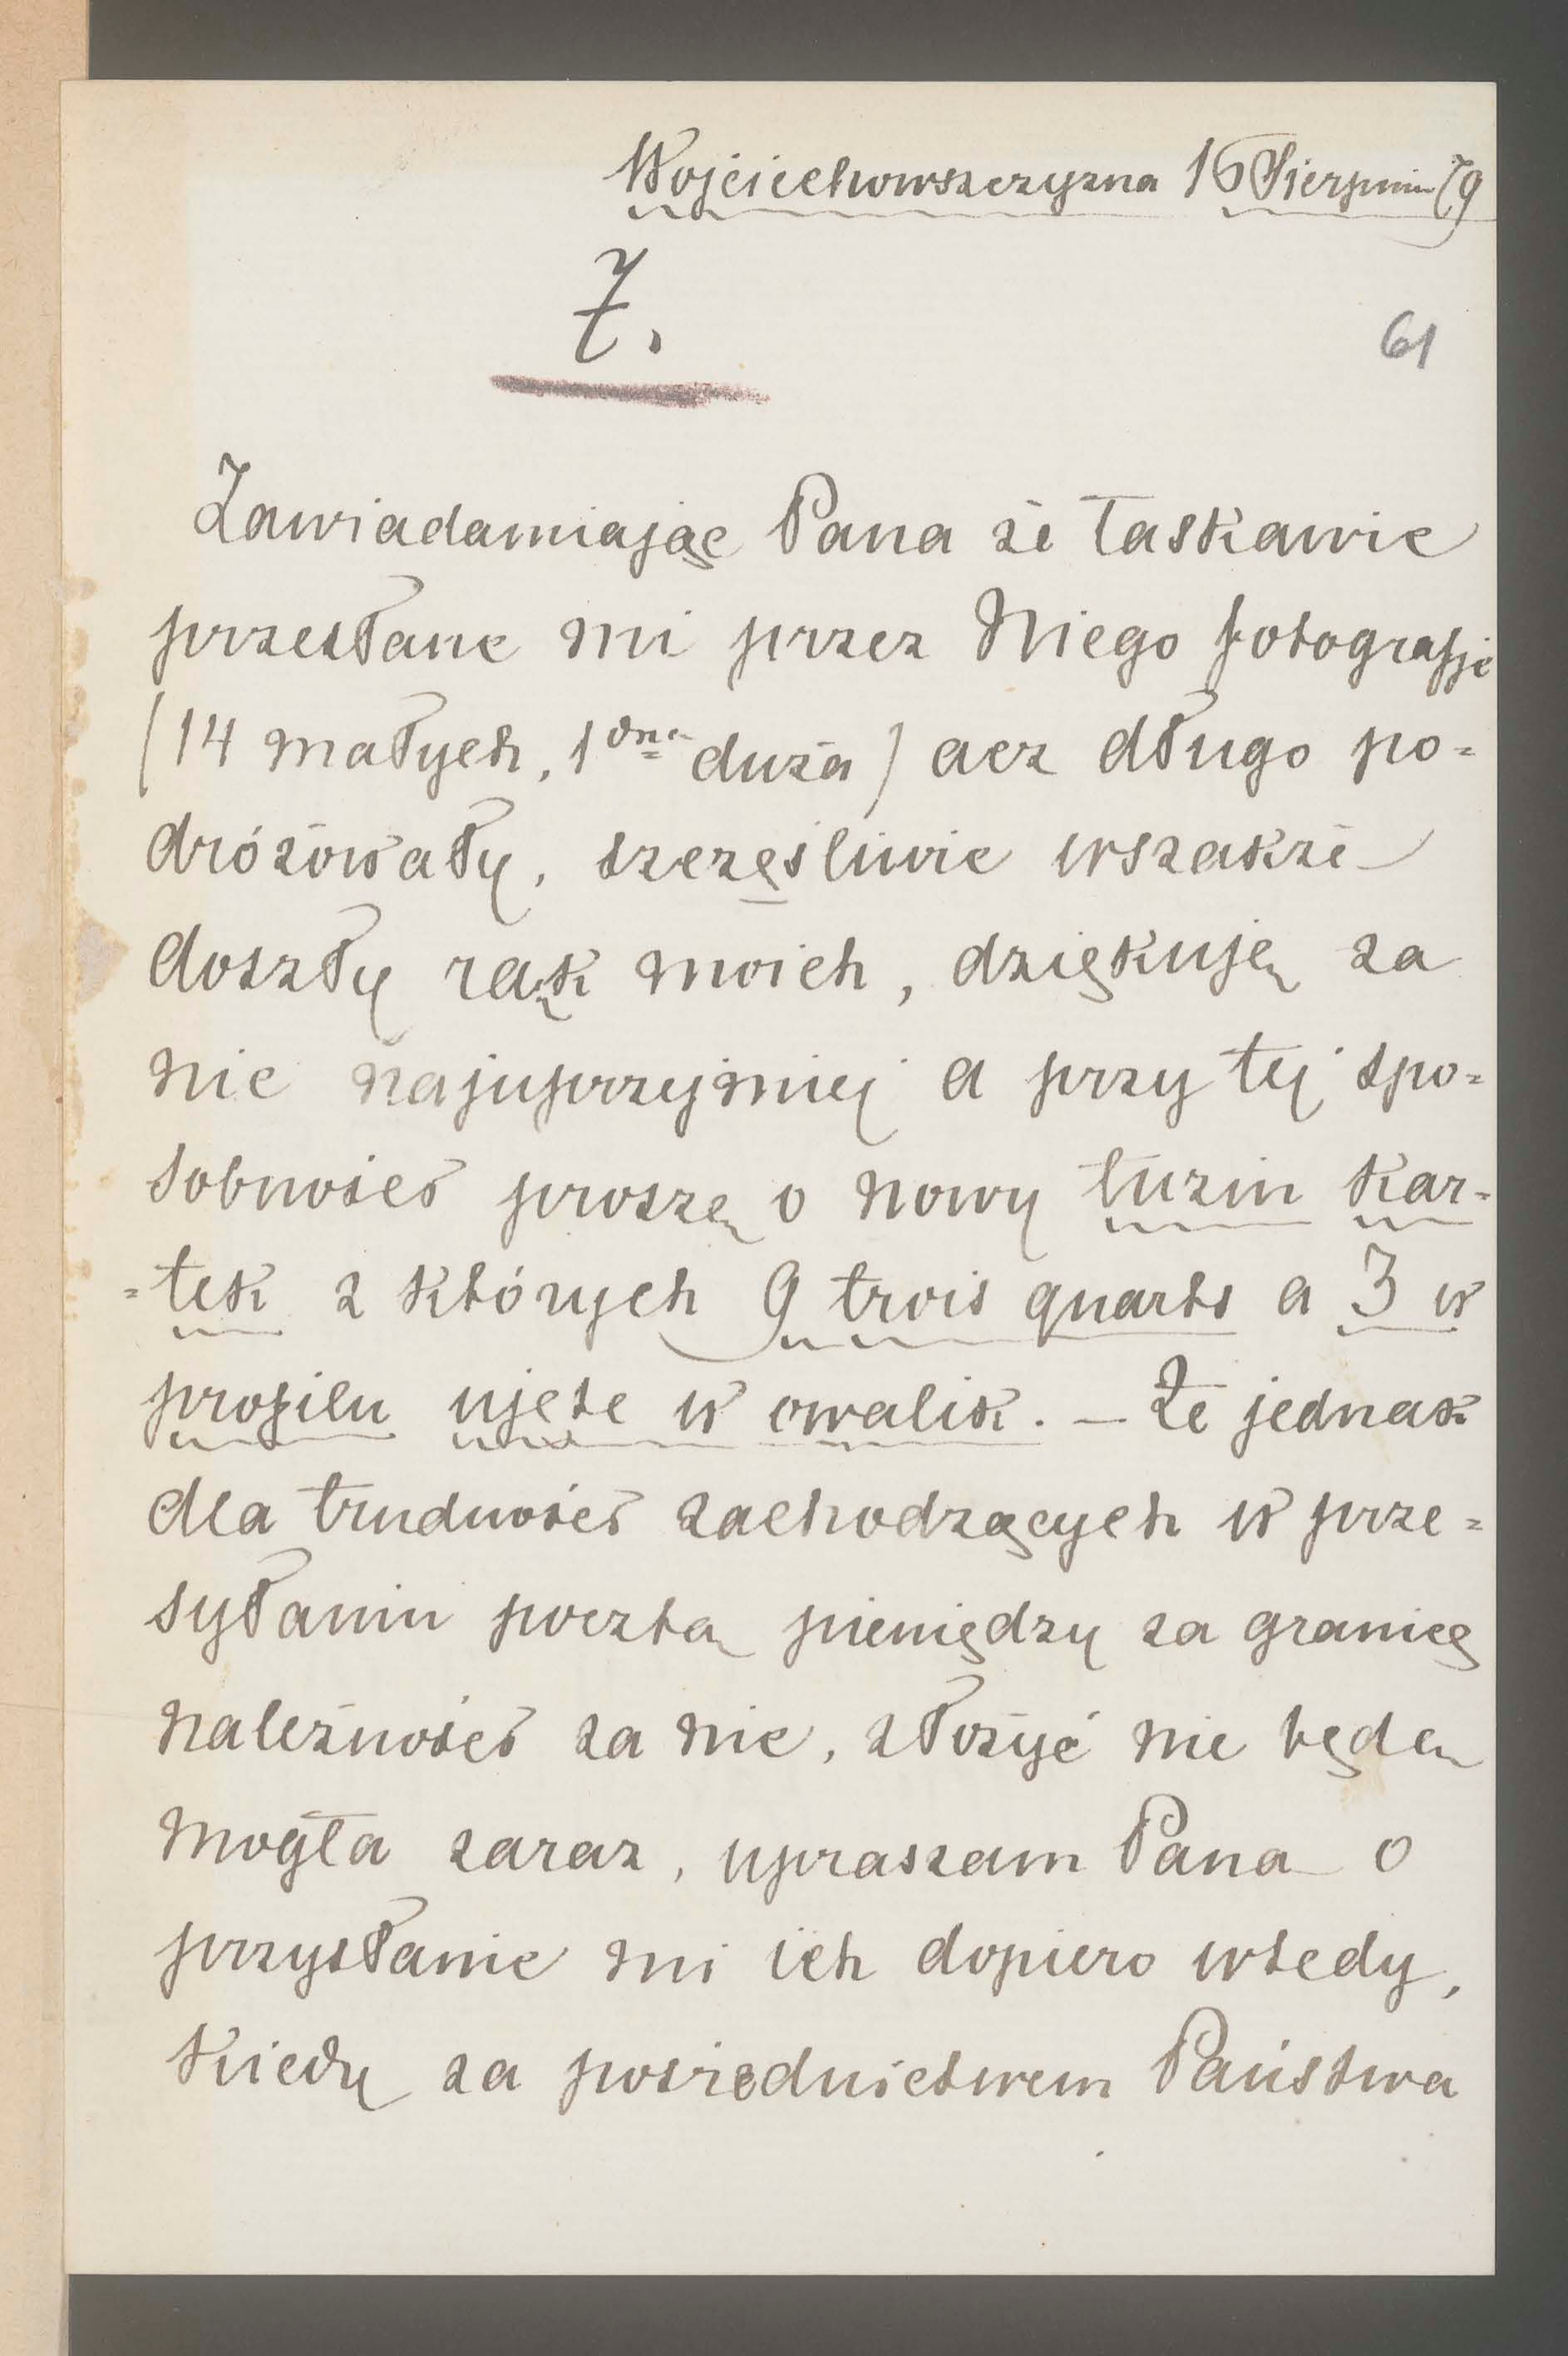 Wojciechowszczyzna 16 Sierpnia 79
7.
61
Zawiadamiając Pana że łaskawie
przesłane mi przez Niego fotografje
(14 małych, 1dna duża) acz długo po=
dróżowały, szczęśliwie wszakże
doszły rąk moich, dziękuję za
nie najuprzejmiej a przy tej spo=
sobności proszę o nowy tuzin kar-
=tek z których 9 trois quarts a 3 w
profilu ujęte w owalik. — Że jednak
dla trudności zachodzących w prze=
syłaniu pocztą pieniędzy za granicę
należności za nie, złożyć nie będę
mogła zaraz, upraszam Pana o
przysłanie mi ich dopiero wtedy,
kiedy za pośrednictwem Państwa